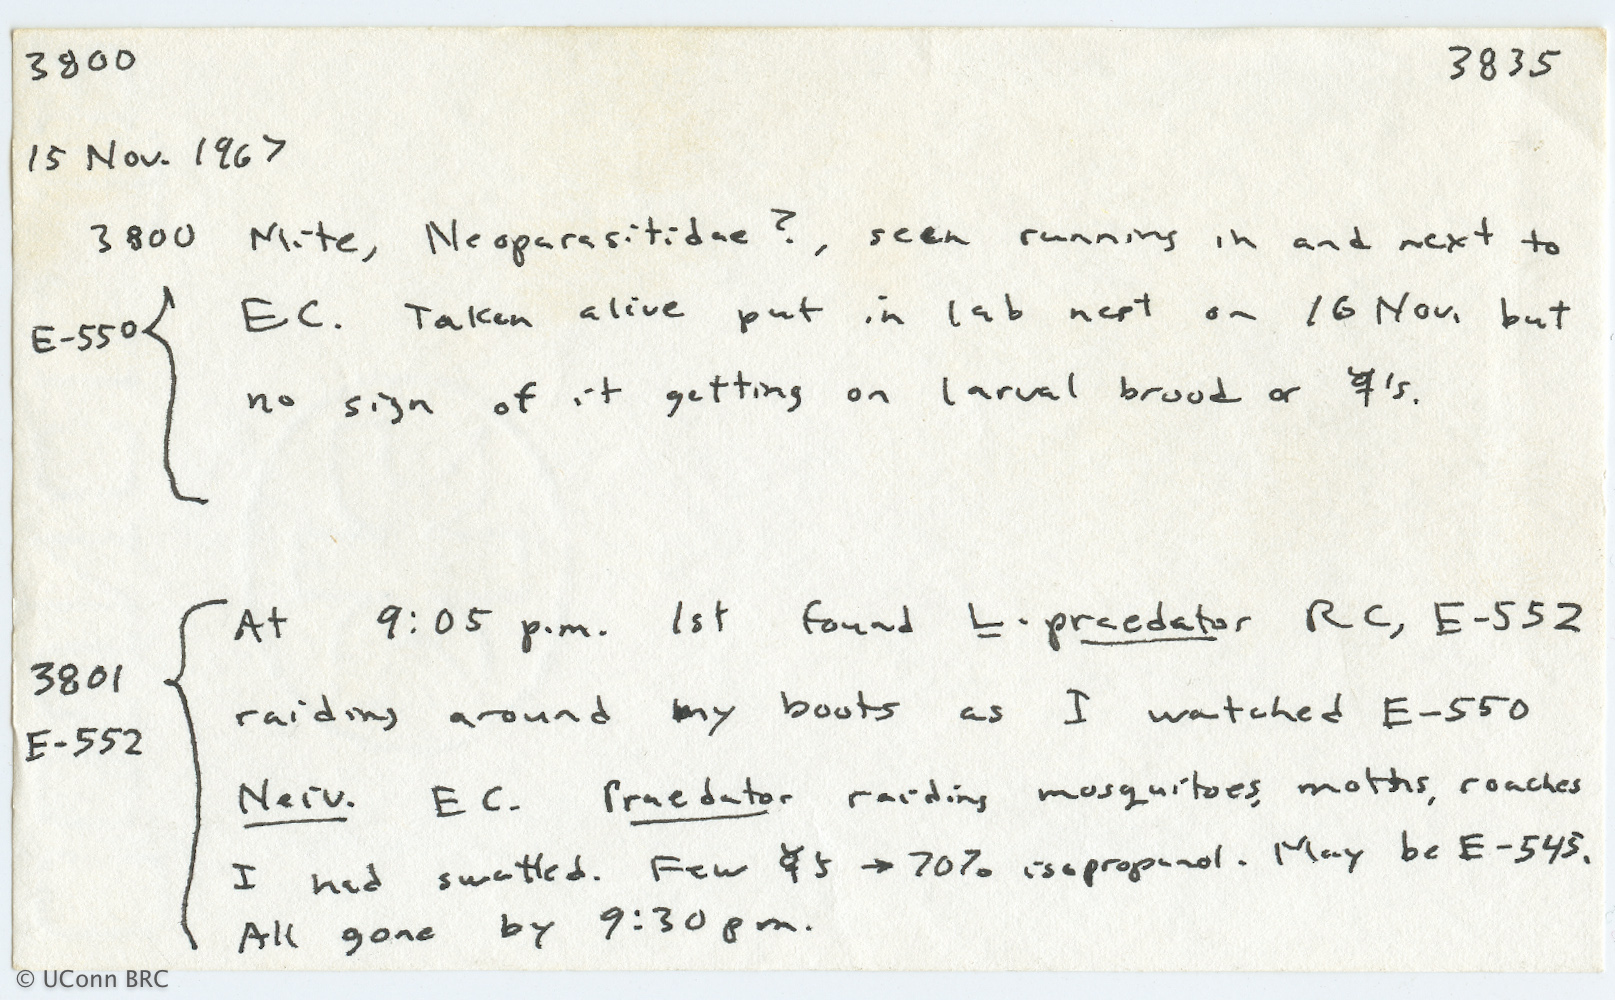 3800 3835
15 Nov. 1967
3800 Mite, Neoparasitidae?, seen running in and next to
E-550 { EC. Taken alive put in lab nest on 16 Nov. but
no sign of it getting on larval brood or ☿'s.
At 9:05 p.m. 1st found L. praedator RC, E-552
3801
raiding around my boots as I watched E-550
E-552
Neiv. EC. Praedator raiding mosquitoes, moths, roaches
I had swatted. Few ☿s → 70% isopropanol. May be E-545.
All gone by 9:30 pm.
© UConn BRC